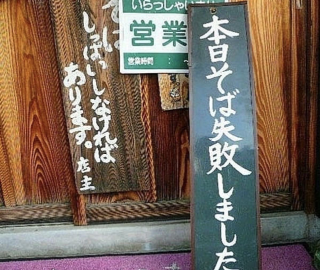 そば
しっぱいしなければ
あります。店主
いらっしゃいませ
営業
営業時間 :
本日そば失敗しました